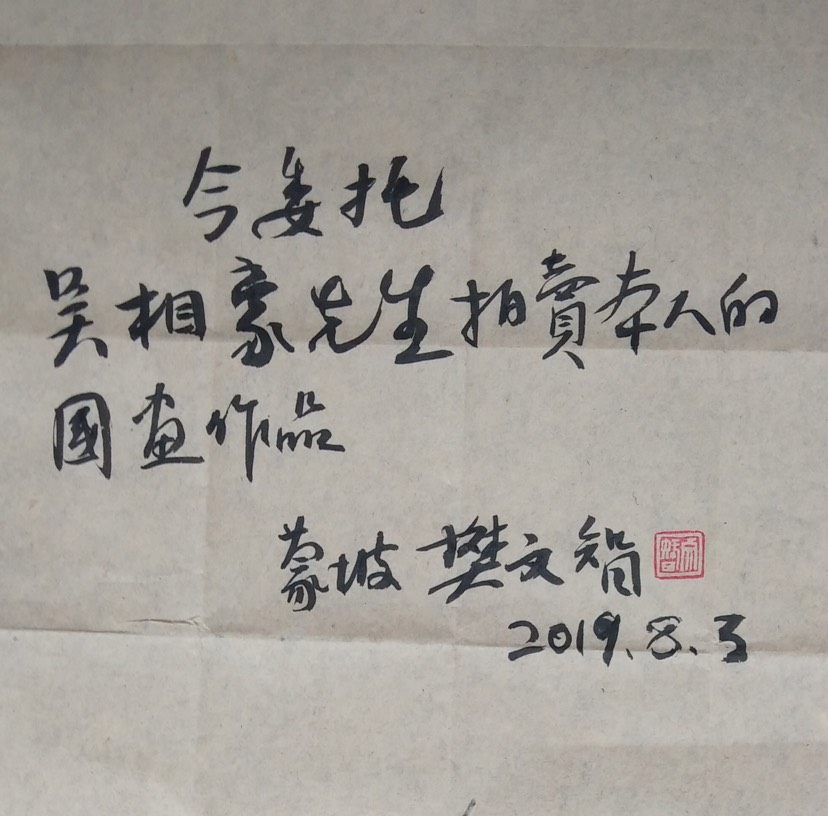 今委托
吴相豪先生拍賣本人的
國画作品
蒙坡 樊文智
2019.8.3